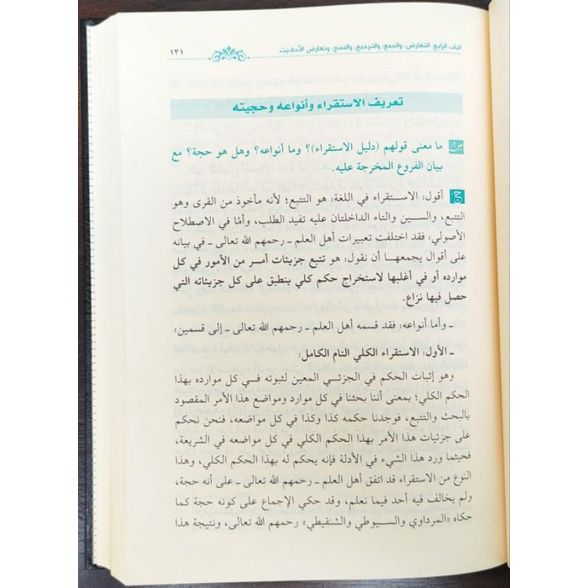 الباب الرابع: التعارض، والجمع، والترجيح، والنسخ، وتعارض الأحاديث
١٢١
تعريف الاستقراء وأنواعه وحجيته
س ما معنى قولهم (دليل الاستقراء)؟ وما أنواعه؟ وهل هو حجة؟ مع
بيان الفروع المخرجة عليه.
ج أقول: الاستقراء في اللغة: هو التتبع؛ لأنه مأخوذ من القرى وهو
التتبع، والسين والتاء الداخلتان عليه تفيد الطلب، وأمّا في الاصطلاح
الأصولي: فقد اختلفت تعبيرات أهل العلم ـ رحمهم الله تعالى ـ في بيانه
على أقوال يجمعهـا أن نقول: هو تتبع جزيئات أمـر من الأمور في كل
موارده أو في أغلبها لاستخراج حكم كلي ينطبق على كل جزيئاته التي
حصل فيها نزاع.
ـ وأما أنواعه: فقد قسمه أهل العلم ـ رحمهم الله تعالى ـ إلى قسمين:
ـ الأول: الاستقراء الكلي التام الكامل:
وهو إثبات الحكم في الجزئي المعين لثبوته فـي كل موارده بهذا
الحكم الكلي؛ بمعنى أننا بحثنا في كل موارد ومواضع هذا الأمر المقصود
بالبحث والتتبع، فوجدنا حكمه كذا وكذا في كل مواضعه، فنحن نحكم
على جزئيات هذا الأمر بهذا الحكم الكلي في كل مواضعه في الشريعة،
فحيثما ورد هذا الشيء في الأدلة فإنه يحكم له بهذا الحكم الكلي، وهذا
النوع من الاستقراء قد اتفق أهل العلم ـ رحمهم الله تعالى ـ على أنه حجة،
ولم يخالف فيه أحد فيما نعلم، وقد حكي الإجماع على كونه حجة كما
حكاه «المرداوي والسيوطي والشنقيطي» رحمهم الله تعالى، ونتيجة هذا